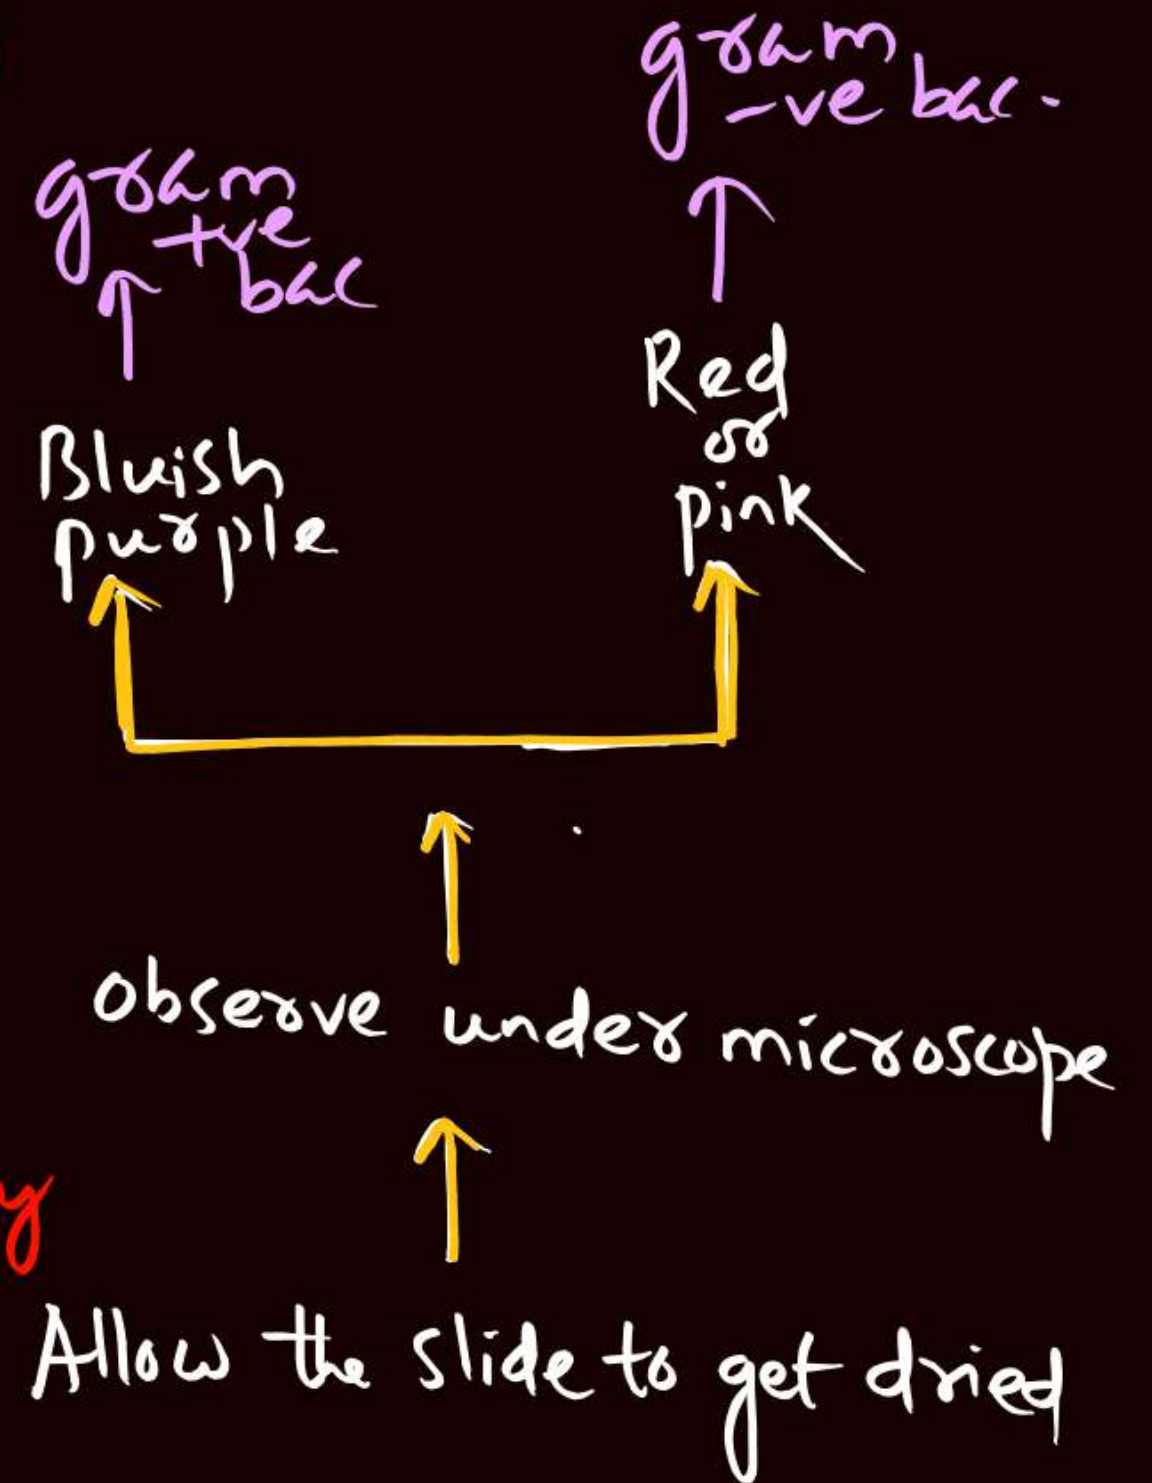 gram
-ve bac.
gram
+ve
bac
Red
or
pink
Bluish
purple
observe under microscope
y
Allow the slide to get dried